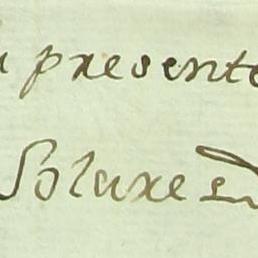 presente
Soluxe en